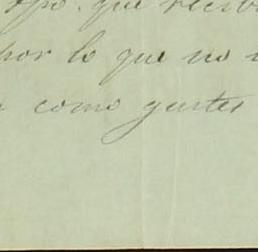 que recib
por lo que no
como gustes